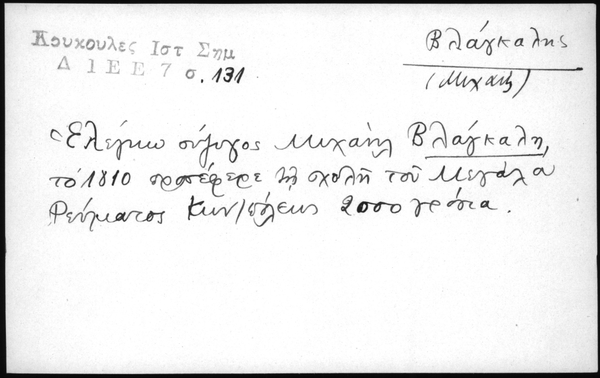 Κουκουλες Ιστ Σημ
Δ 1 Ε Ε 7 σ. 131
Βλάγκαλης
(Μιχαήλ)
Ἑλέγκω σύζυγος Μιχαήλ Βλάγκαλη,
τό 1810 προσέφερε τῇ σχολῇ τοῦ Μεγάλου
Ρεύματος Κων/πόλεως 2000 γρόσια.